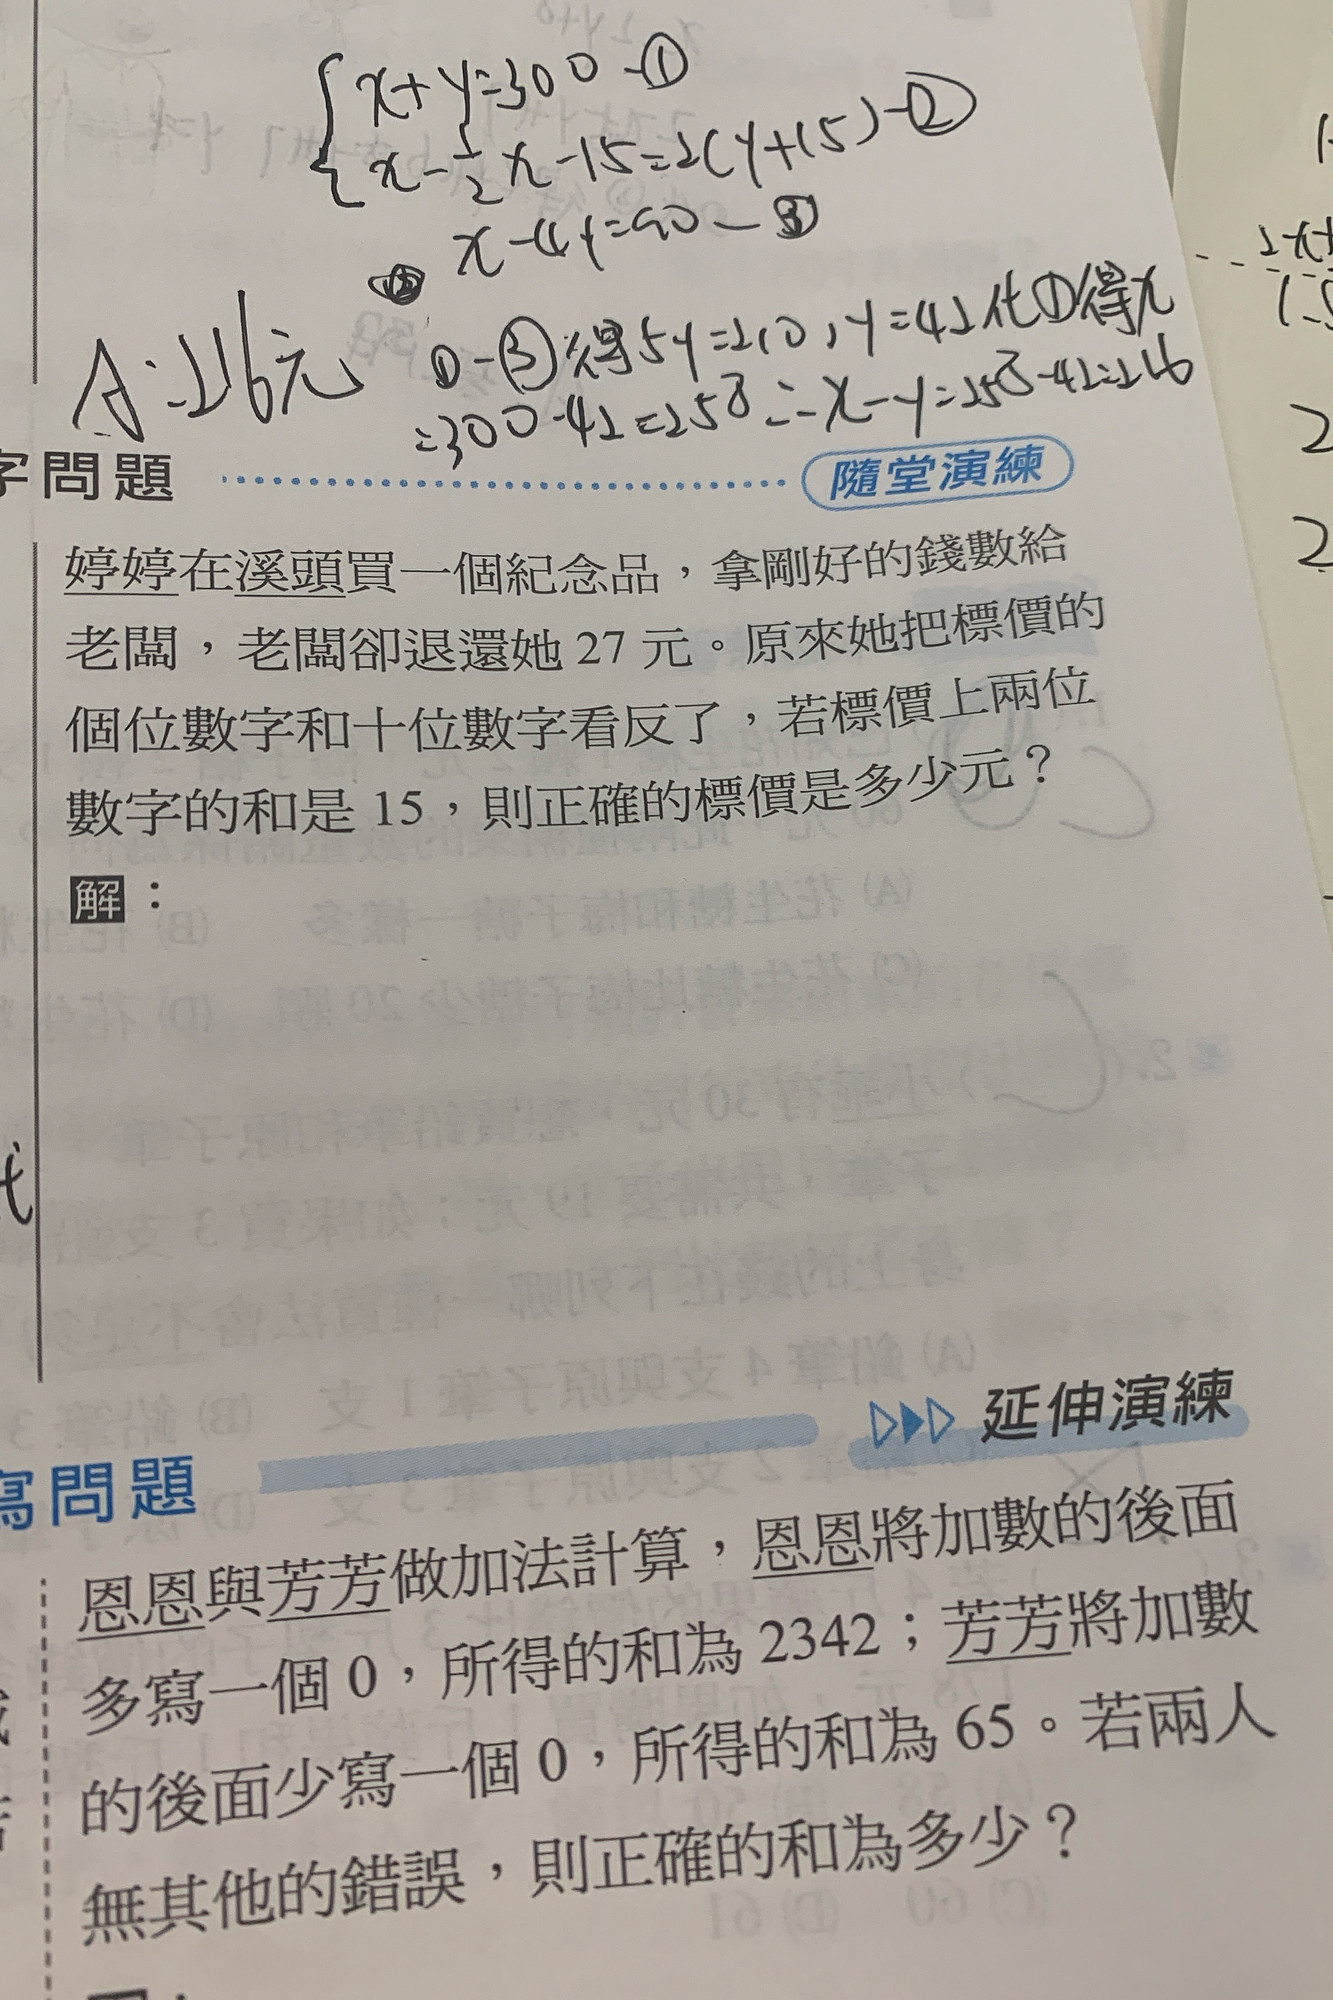 x+y=300-①
x-1/2x-15=2(y+15)-②
x-4y=90-③
A:216元
①-③得5y=210,y=42代①得x
=300-42=258∴x-y=258-42=216
字問題 隨堂演練
婷婷在溪頭買一個紀念品，拿剛好的錢數給
老闆，老闆卻退還她 27 元。原來她把標價的
個位數字和十位數字看反了，若標價上兩位
數字的和是 15，則正確的標價是多少元？
解：
寫問題 延伸演練
恩恩與芳芳做加法計算，恩恩將加數的後面
多寫一個 0，所得的和為 2342；芳芳將加數
的後面少寫一個 0，所得的和為 65。若兩人
無其他的錯誤，則正確的和為多少？